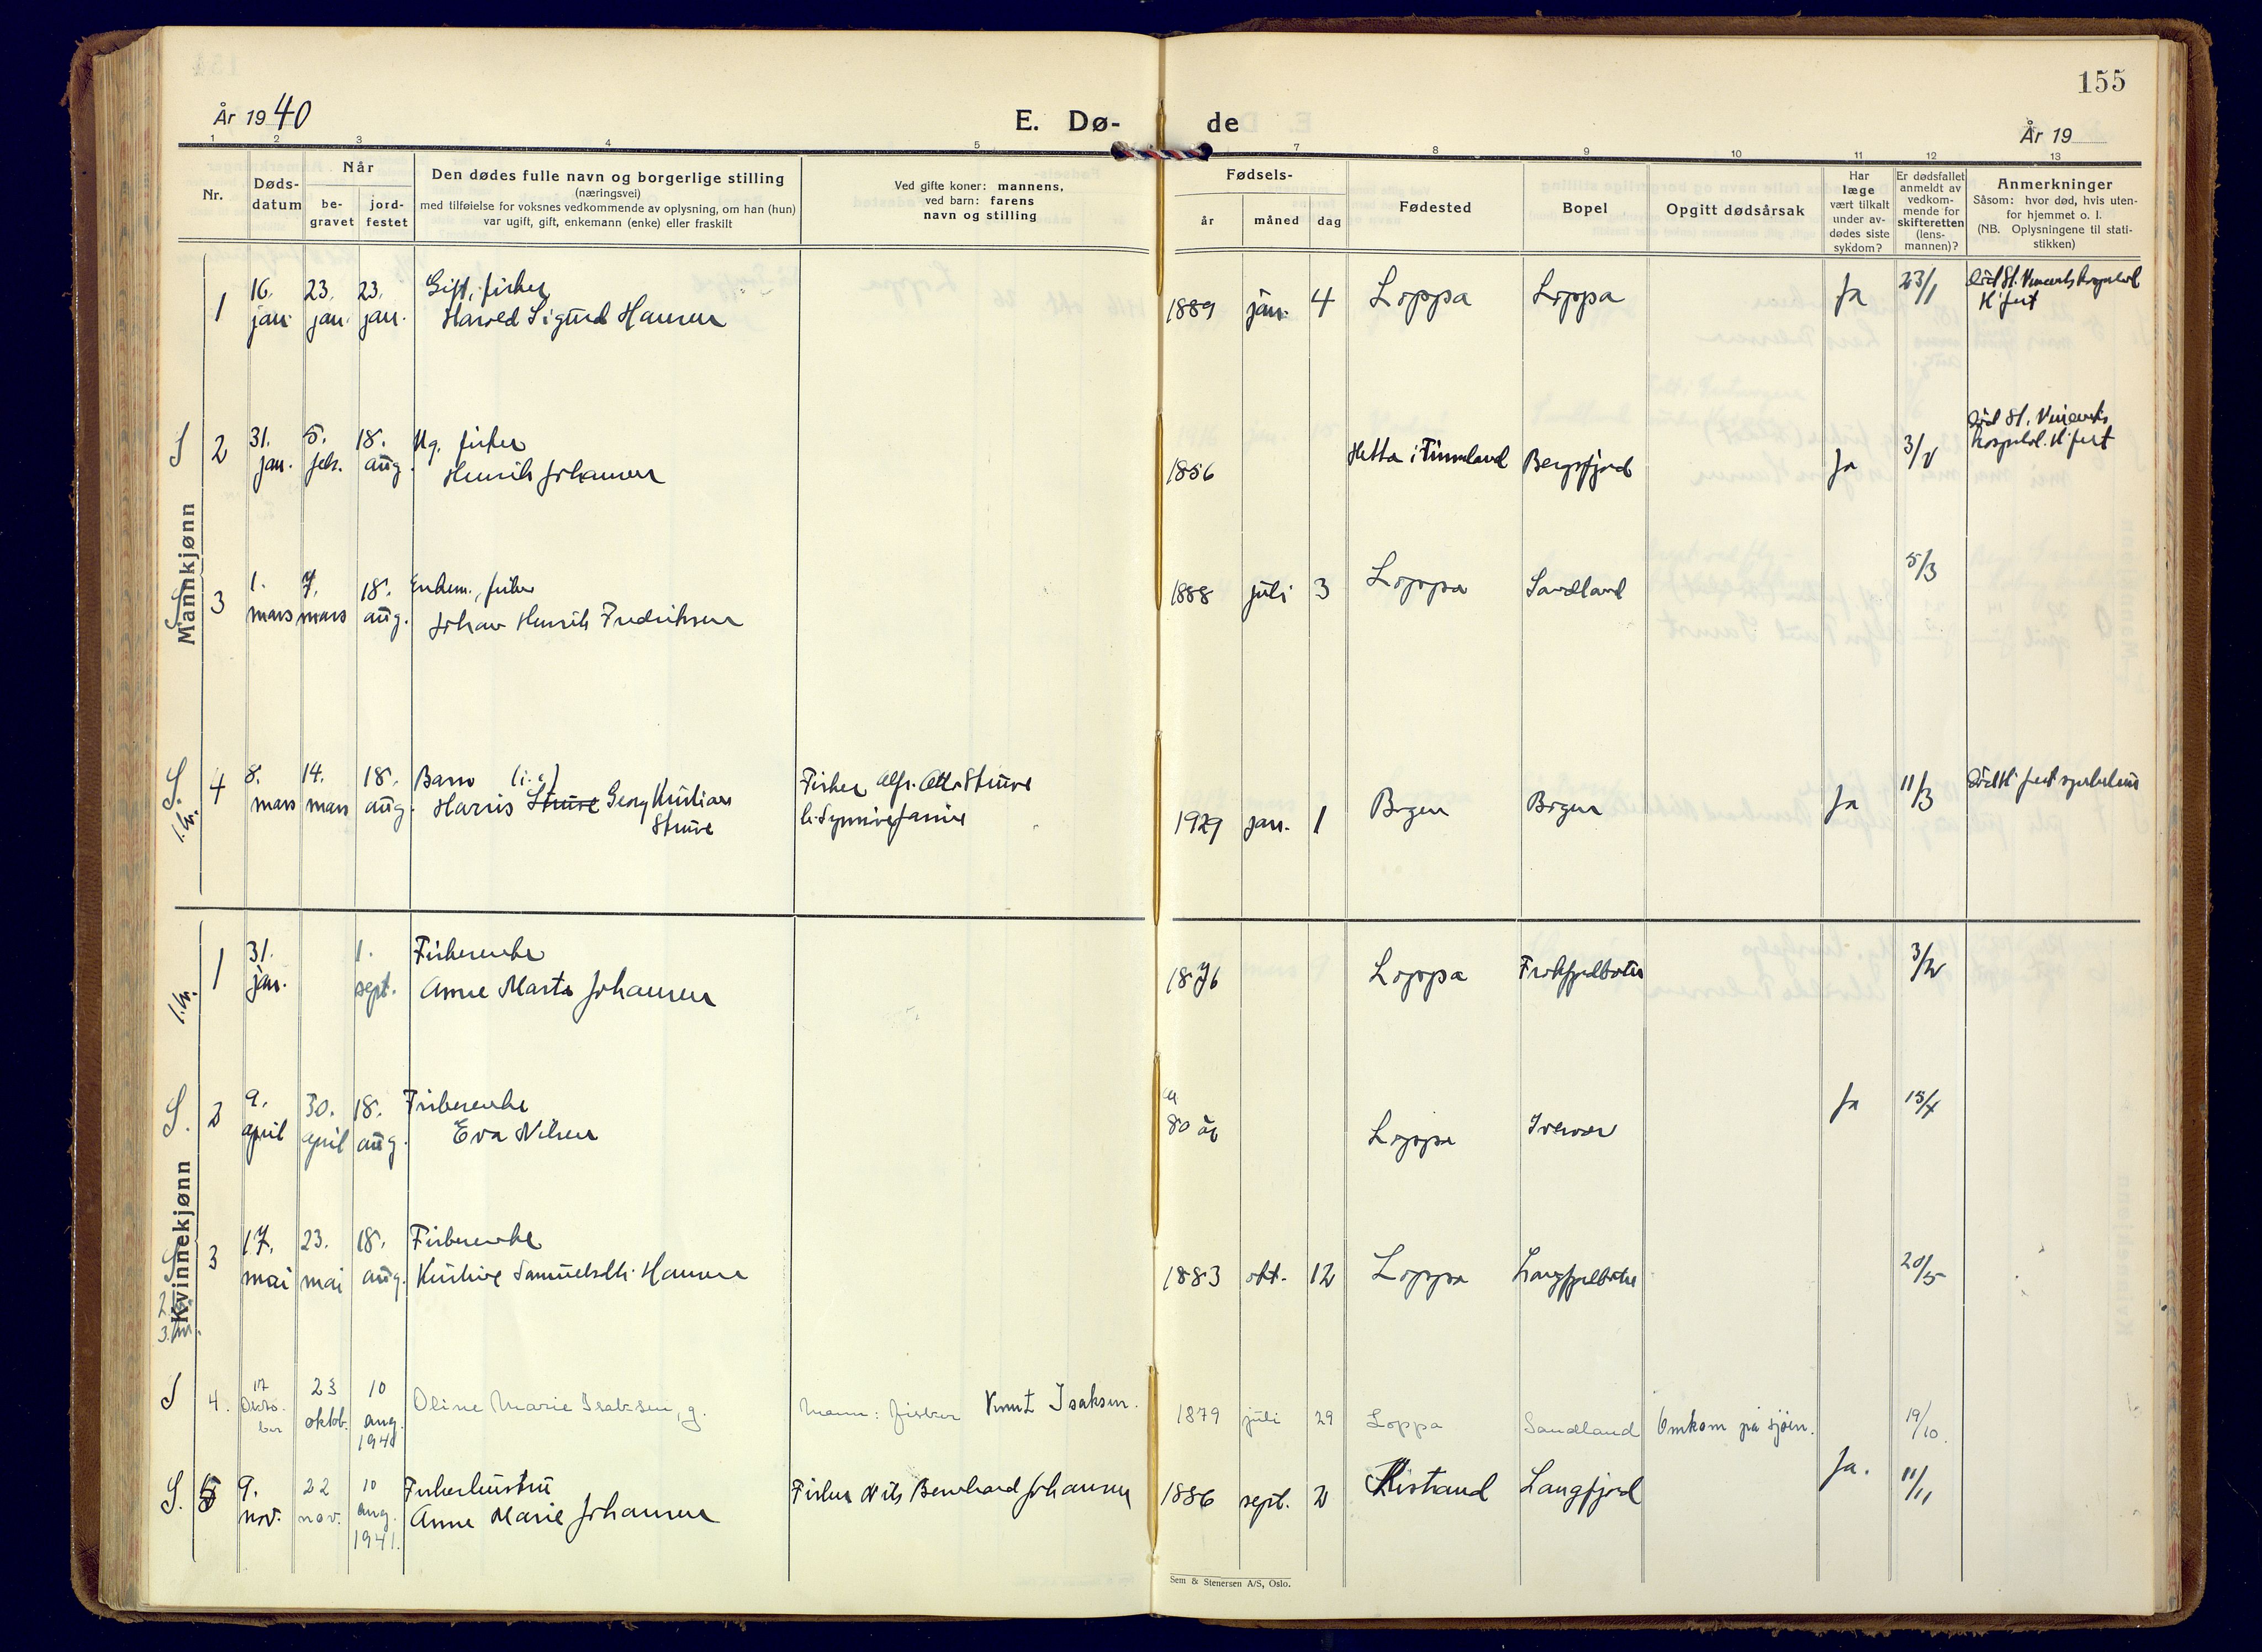 155
År 1940
E. Dø-de
År 19
1 2 3 4 5 7 8 9 10 11 12 13
Nr.
Døds-
datum
Når
be-
gravet
jord-
festet
Den dødes fulle navn og borgerlige stilling
(næringsvei)
med tilføielse for voksnes vedkommende av oplysning, om han (hun)
var ugift, gift, enkemann (enke) eller fraskilt
Ved gifte koner: mannens,
ved barn: farens
navn og stilling
Fødsels-
år
måned
dag
Fødested
Bopel
Opgitt dødsårsak
Har
læge
vært tilkalt
under av-
dødes siste
sykdom?
Er dødsfallet
anmeldt av
vedkom-
mende for
skifteretten
(lens-
mannen)?
Anmerkninger
Såsom: hvor død, hvis uten-
for hjemmet o. l.
(NB. Oplysningene til stati-
stikken)
Mannkjønn
1 16. jan. 23. jan. 23. jan. Gift, fisker
Harold Sigurd Hansen
1889 jan. 4 Loppa Loppa Ja 23/1 død St. Vincents hospital
H'fest
S 2 31. jan. 5. feb. 18. aug. Ug. fisker
Henrik Johansen
1856 Hetta i Finnland Bergsfjord Ja 3/2 død St. Vincents
hospital. H'fest
S 3 1. mars 7. mars 18. aug. Enkem., fisker
Johan Henrik Fredriksen
1888 juli 3 Loppa Sandland 5/3
S. 1.kv. 4 8. mars 14. mars 18. aug. Barn
Harris Struve Georg Kristian
Struve
Fisker Alfr. Struve
1929 jan. 1 Bogen Bogen Ja 11/3 død H'fest sykehus
Kvinnekjønn
1.kv. 1 31. jan. 1. sept. Fiskerenke
Anne Marta Johansen
1876 Loppa 3/2
S. 2 9. april 30. april 18. aug. Fiskerenke
Eva Nilsen
ca 80 år Loppa Ja 15/4
S 3 17. mai 23. mai 18. aug. Fiskerenke
Kristine Samuelsdtr. Hansen
1883 okt. 12 Loppa Langfjordbotn 20/5
3.kv.
S 4. 17 Oktober 23 oktob. 10 aug. 1941 Oline Marie Isaksen, g.
Mann: fisker Knut Isaksen.
1879 juli 29 Loppa Sandland Omkom på sjøen. 19/10.
S. 5 9. nov. 22 nov. 10 aug. 1941. Fiskerhustru
Anne Marie Johansen
Fisker Nils Bernhard Johansen
1886 sept. 2 Kistrand Langfjord Ja. 11/11
Sem & Stenersen A/S, Oslo.